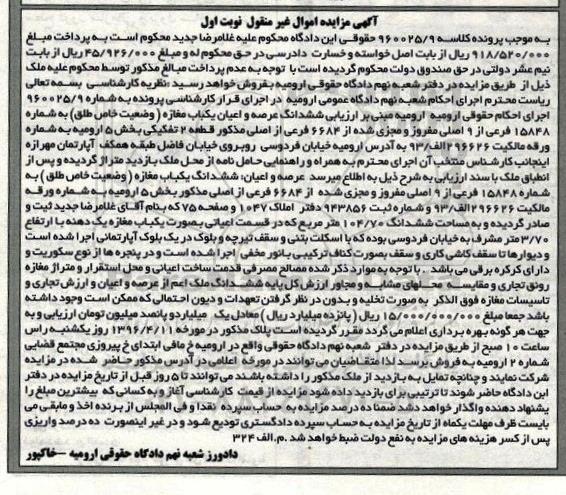 آگهی مزایده اموال غیر منقول نوبت اول
به موجب پرونده کلاسه ۹۶۰۰۲۵/۹ حقوقی این دادگاه محکوم علیه غلامرضا جدید محکوم است به پرداخت مبلغ
۹۱۸/۵۲۰/۰۰۰ ریال از بابت اصل خواسته و خسارت دادرسی در حق محکوم له و مبلغ ۴۵/۹۲۶/۰۰۰ ریال از بابت
نیم عشر دولتی در حق صندوق دولت محکوم گردیده است با توجه به عدم پرداخت مبالغ مذکور توسط محکوم علیه ملک
ذیل از طریق مزایده در دفتر شعبه نهم دادگاه حقوقی ارومیه بفروش خواهد رسید : نظریه کارشناسی بسمه تعالی
ریاست محترم اجرای احکام شعبه نهم دادگاه عمومی ارومیه در اجرای قرار کارشناسی پرونده به شماره ۹۶۰۰۲۵/۹
اجرای احکام حقوقی ارومیه ارومیه مبنی بر ارزیابی ششدانگ عرصه و اعیان یکباب مغازه (وضعیت خاص طلق) به شماره
۱۵۸۴۸ فرعی از ۹ اصلی مفروز و مجزی شده از ۶۶۸۴ فرعی از اصلی مذکور قطعه ۲ تفکیکی بخش ۵ ارومیه به شماره
ورقه مالکیت ۲۹۶۶۲۶الف/۹۳ به آدرس ارومیه خیابان فردوسی روبروی خیابان فاضل طبقه همکف آپارتمان مهرازه
اینجانب کارشناس منتخب آن اجرای محترم به همراه و راهنمایی حامل نامه از محل ملک بازدید متراژ گردیده و پس از
انطباق ملک با سند ارزیابی به شرح ذیل به اطلاع میرسد عرصه و اعیان: ششدانگ یکباب مغازه (وضعیت خاص طلق) به
شماره ۱۵۸۴۸ فرعی از ۹ اصلی مفروز و مجزی شده از ۶۶۸۴ فرعی از اصلی مذکور بخش ۵ ارومیه به شماره ورقه
مالکیت ۲۹۶۶۲۶الف۹۳ و شماره ثبت ۹۴۳۸۵۶ دفتر املاک ۱۰۴۷ و صفحه ۷۵ که بنام آقای غلامرضا جدید ثبت و
صادر گردیده و به مساحت ششدانگ ۱۰۴/۷۰ متر مربع که در قسمت اعیانی بصورت یکباب مغازه یک دهنه با ارتفاع
۳/۷۰ متر مشرف به خیابان فردوسی بوده که با اسکلت بتنی و سقف تیرچه و بلوک در یک بلوک آپارتمانی اجرا شده است
و دیوارها تا سقف کاشی کاری و سقف بصورت کناف ترکیبی با نور مخفی اجرا شده است و در پنجره ها از نوع سکوریت و
دارای کرکره برقی می باشد . با توجه به موارد ذکر شده مصالح مصرفی قدمت ساخت اعیانی و محل استقرار و متراژ مغازه
رونق تجاری و مقایسه محلهای مشابه و مجاور ارزش کل پایه ششدانگ ملک اعم از عرصه و اعیان و ارزش تجاری و
تاسیسات مغازه فوق الذکر به صورت تخلیه و بدون در نظر گرفتن تعهدات و دیون احتمالی که ممکن است وجود داشته
باشد جمعا مبلغ ۱۵/۰۰۰/۰۰۰/۰۰۰ ریال (پانزده میلیارد ریال) معادل یک میلیارد و پانصد میلیون تومان ارزیابی و به
جهت هر گونه بهره برداری اعلام می گردد مقرر گردیده است پلاک مذکور در مورخه ۱۳۹۶/۴/۱۱ روز یکشنبه راس
ساعت ۱۰ صبح از طریق مزایده در دفتر شعبه نهم دادگاه حقوقی واقع در ارومیه خ مافی ابتدای خ پیروزی مجتمع قضایی
شماره ۲ ارومیه به فروش برسد لذا متقاضیان می توانند در مورخه اعلامی در آدرس مذکور حاضر شده در مزایده
شرکت نمایند و چنانچه تمایل به بازدید از ملک مذکور را داشته باشند می توانند تا ۵ روز قبل از تاریخ مزایده در دفتر
این دادگاه حاضر شوند تا ترتیبی برای بازدید داده شود مزایده از قیمت کارشناسی آغاز و به کسانی که بیشترین مبلغ را
پیشنهاد دهنده واگذار خواهد دشد ضمنا ده درصد مزایده به حساب سپرده نقدا و فی المجلس از برنده اخذ و مابقی می
بایست ظرف مهلت یکماه از تاریخ مزایده به حساب سپرده دادگستری تودیع شود و در غیر اینصورت ده درصد واریزی
پس از کسر هزینه های مزایده به نفع دولت ضبط خواهد شد .م.الف ۳۲۴
دادورز شعبه نهم دادگاه حقوقی ارومیه –خاکپور